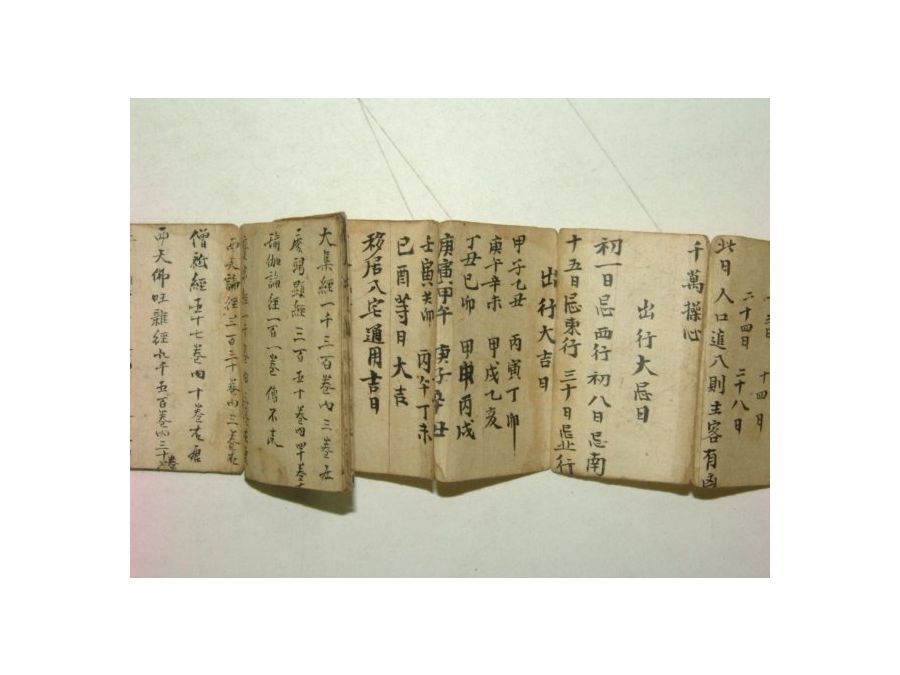 十四日
二十四日 二十八日
此日人口進入則主客有凶
千萬操心
出行大忌日
初一日忌西行初八日忌南
十五日忌東行三十日忌北行
出行大吉日
甲子乙丑 丙寅丁卯
庚午辛未 甲戌乙亥
丁丑己卯 甲申丙戌
庚寅甲午 庚子辛丑
壬寅癸卯 丙午丁未
己酉等日大吉
移居入宅通用吉日
大集經一千三百卷內三卷在
三百五十卷四十卷在
瑜伽論經一百一卷
西天論經一百三十卷內三卷在
僧祗經五十七卷內十卷在唐
西天佛 雜經九千五百卷內三十卷